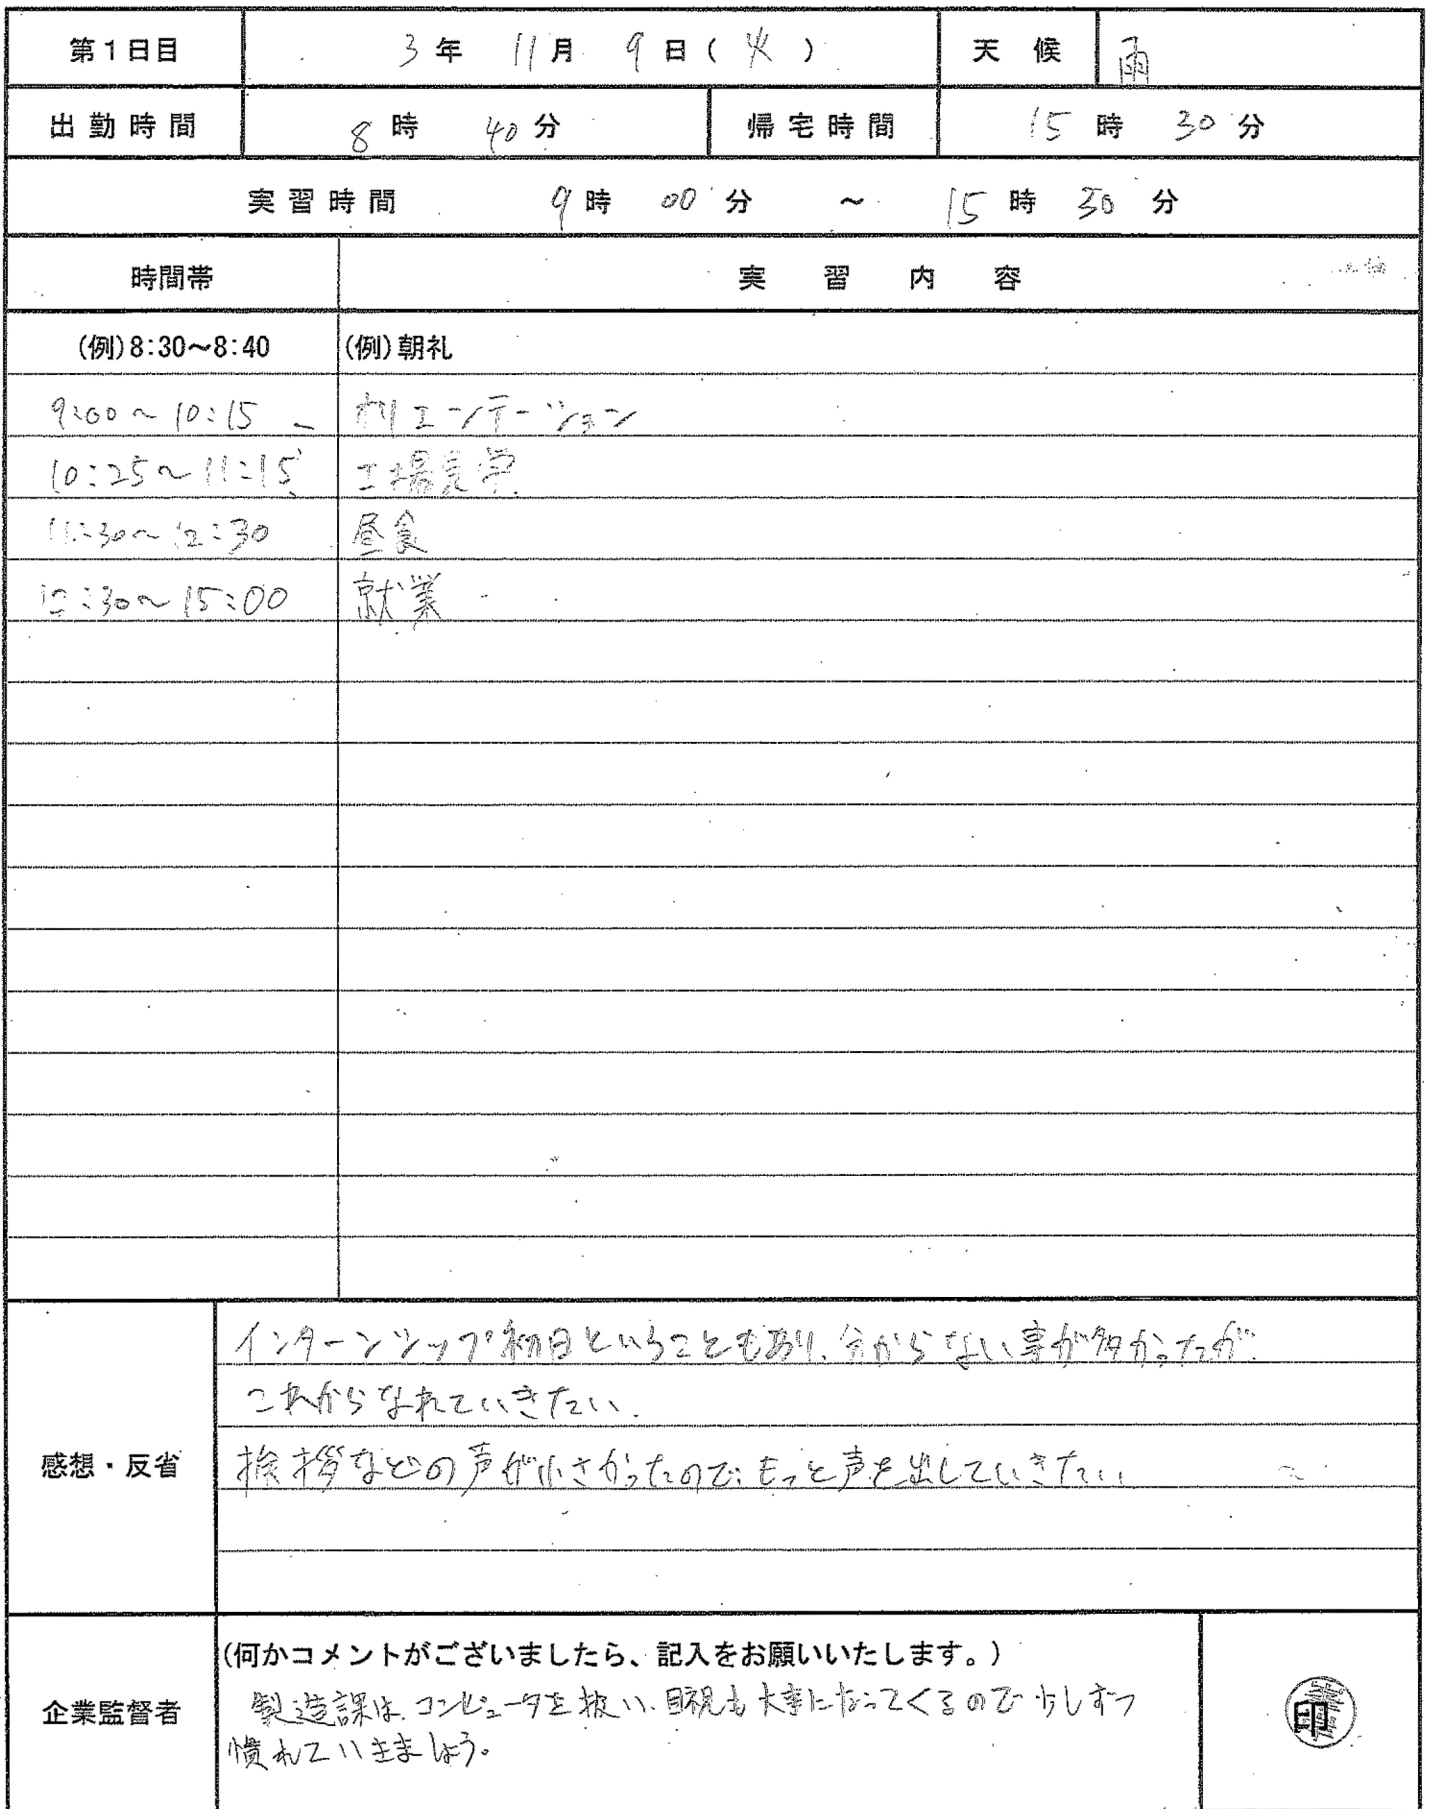 第1日目 3年 11月 9日(火) 天候 雨
出勤時間 8時 40分 帰宅時間 15時 30分
実習時間 9時 00分 ~ 15時 30分
時間帯 実習内容
(例)8:30~8:40 (例)朝礼
9:00~10:15 オリエンテーション
10:25~11:15 工場見学
11:30~12:30 昼食
12:30~15:00 就業
感想・反省
インターンシップ初日ということもあり、分からない事が多かったが
これからなれていきたい。
挨拶などの声が小さかったので、もっと声を出していきたい
企業監督者
(何かコメントがございましたら、記入をお願いいたします。)
製造課は、コンピュータを扱い、目視も大事になってくるので少しずつ
慣れていきましょう。
印